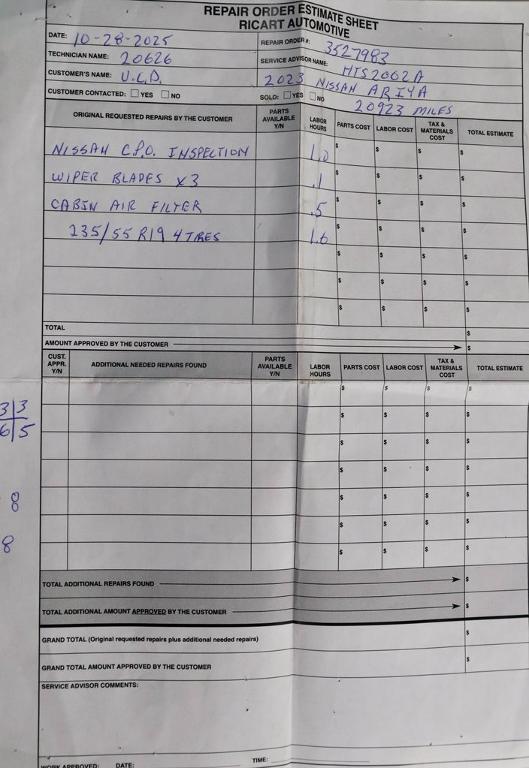 REPAIR ORDER ESTIMATE SHEET
RICART AUTOMOTIVE
DATE: 10-28-2025 REPAIR ORDER #: 3527983
TECHNICIAN NAME: 20626 SERVICE ADVISOR NAME: HTS2002A
CUSTOMER'S NAME: U.C.D. 2023 NISSAN ARIYA
CUSTOMER CONTACTED: YES NO SOLD: YES NO 20923 MILES
ORIGINAL REQUESTED REPAIRS BY THE CUSTOMER PARTS AVAILABLE Y/N LABOR HOURS PARTS COST LABOR COST TAX & MATERIALS COST TOTAL ESTIMATE
NISSAN C.P.O. INSPECTION 1.0 $ $ $ $
WIPER BLADES x3 .1 $ $ $ $
CABIN AIR FILTER .5 $ $ $ $
235/55 R19 4 TIRES 1.6 $ $ $ $
$ $ $ $
$ $ $ $
$ $ $ $
TOTAL $
AMOUNT APPROVED BY THE CUSTOMER $
CUST. APPR. Y/N ADDITIONAL NEEDED REPAIRS FOUND PARTS AVAILABLE Y/N LABOR HOURS PARTS COST LABOR COST TAX & MATERIALS COST TOTAL ESTIMATE
$ $ $ $
3|3 $ $ $ $
6|5 $ $ $ $
$ $ $ $
8 $ $ $ $
$ $ $ $
8 $ $ $ $
TOTAL ADDITIONAL REPAIRS FOUND $
TOTAL ADDITIONAL AMOUNT APPROVED BY THE CUSTOMER $
GRAND TOTAL (Original requested repairs plus additional needed repairs) $
GRAND TOTAL AMOUNT APPROVED BY THE CUSTOMER $
SERVICE ADVISOR COMMENTS:
WORK APPROVED: DATE: TIME: